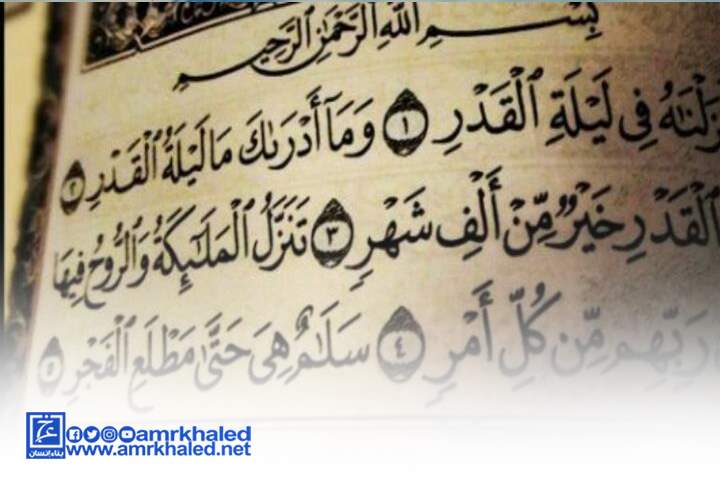 بِسْمِ ٱللَّهِ ٱلرَّحْمَٰنِ ٱلرَّحِيمِ
فِي لَيْلَةِ ٱلْقَدْرِ ١ وَمَآ أَدْرَىٰكَ مَا لَيْلَةُ ٱلْقَدْرِ ٢
ٱلْقَدْرِ خَيْرٌ مِّنْ أَلْفِ شَهْرٍ ٣ تَنَزَّلُ ٱلْمَلَٰٓئِكَةُ وَٱلرُّوحُ فِيهَا
رَبِّهِم مِّن كُلِّ أَمْرٍ ٤ سَلَٰمٌ هِيَ حَتَّىٰ مَطْلَعِ ٱلْفَجْرِ ٥
بناء إنسان
amrkhaled
www.amrkhaled.net